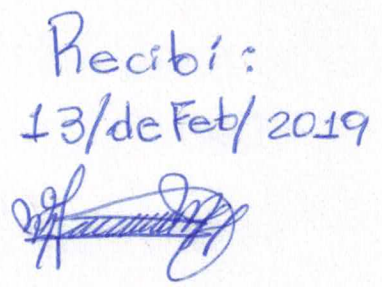 Recibí:
13/de Feb/ 2019